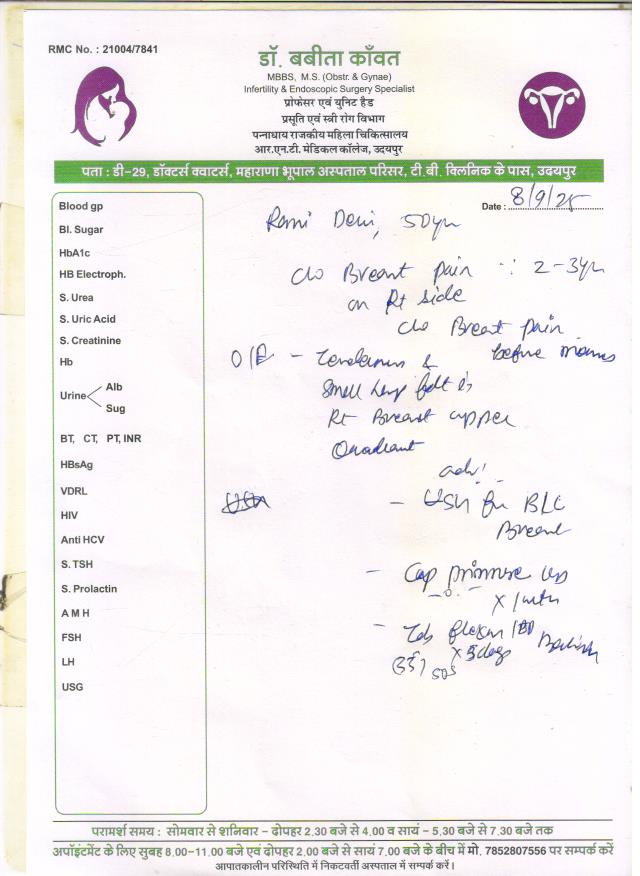 RMC No. : 21004/7841
डॉ. बबीता काँवत
MBBS, M.S. (Obstr. & Gynae)
Infertility & Endoscopic Surgery Specialist
प्रोफेसर एवं युनिट हैड
प्रसूति एवं स्त्री रोग विभाग
पन्नाधाय राजकीय महिला चिकित्सालय
आर.एन.टी. मेडिकल कॉलेज, उदयपुर
पता : डी-29, डॉक्टर्स क्वाटर्स, महाराणा भूपाल अस्पताल परिसर, टी.बी. क्लिनिक के पास, उदयपुर
Date : 8/9/25
Blood gp
Bl. Sugar
HbA1c
HB Electroph.
S. Urea
S. Uric Acid
S. Creatinine
Hb
Urine
Alb
Sug
BT, CT, PT, INR
HBsAg
VDRL
HIV
Anti HCV
S. TSH
S. Prolactin
A M H
FSH
LH
USG
Rami Devi, 50yr
c/o Breast pain 2-3yr
on Rt side
c/o Breast pain
before menses
O/E - Tenderness &
small lump felt in
Rt Breast upper
Quadrant
adv:
- USG for
Breast
- Cap primrose
- Tab
x 5days
SOS
परामर्श समय : सोमवार से शनिवार - दोपहर 2.30 बजे से 4.00 व सायं - 5.30 बजे से 7.30 बजे तक
अपॉइंटमेंट के लिए सुबह 8.00-11.00 बजे एवं दोपहर 2.00 बजे से सायं 7.00 बजे के बीच में मो. 7852807556 पर सम्पर्क करें
आपातकालीन परिस्थिति में निकटवर्ती अस्पताल में सम्पर्क करें।